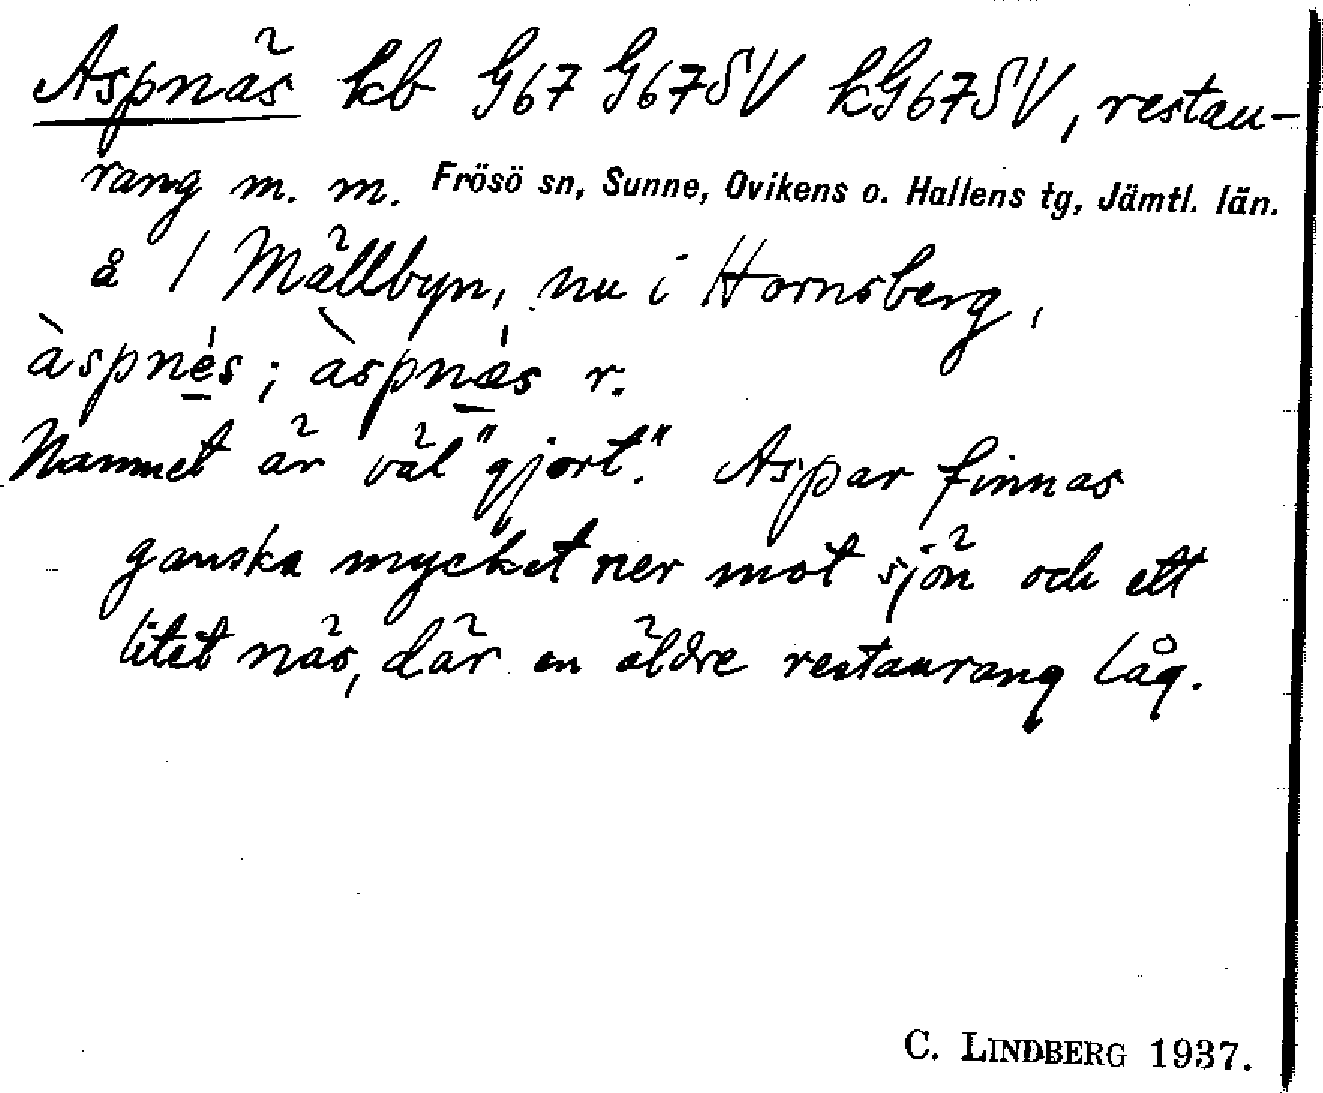 Aspnäs kb G67 G67SV kG67SV, restau-
rang m. m. Frösö sn, Sunne, Ovikens o. Hallens tg, Jämtl. län.
å 1 Mällbyn, nu i Hornsberg,
àspnés; àspnǽs r.
Namnet är väl "gjort". Aspar finnas
ganska mycket ner mot sjön och ett
litet näs, där en äldre restaurang låg.
C. LINDBERG 1937.